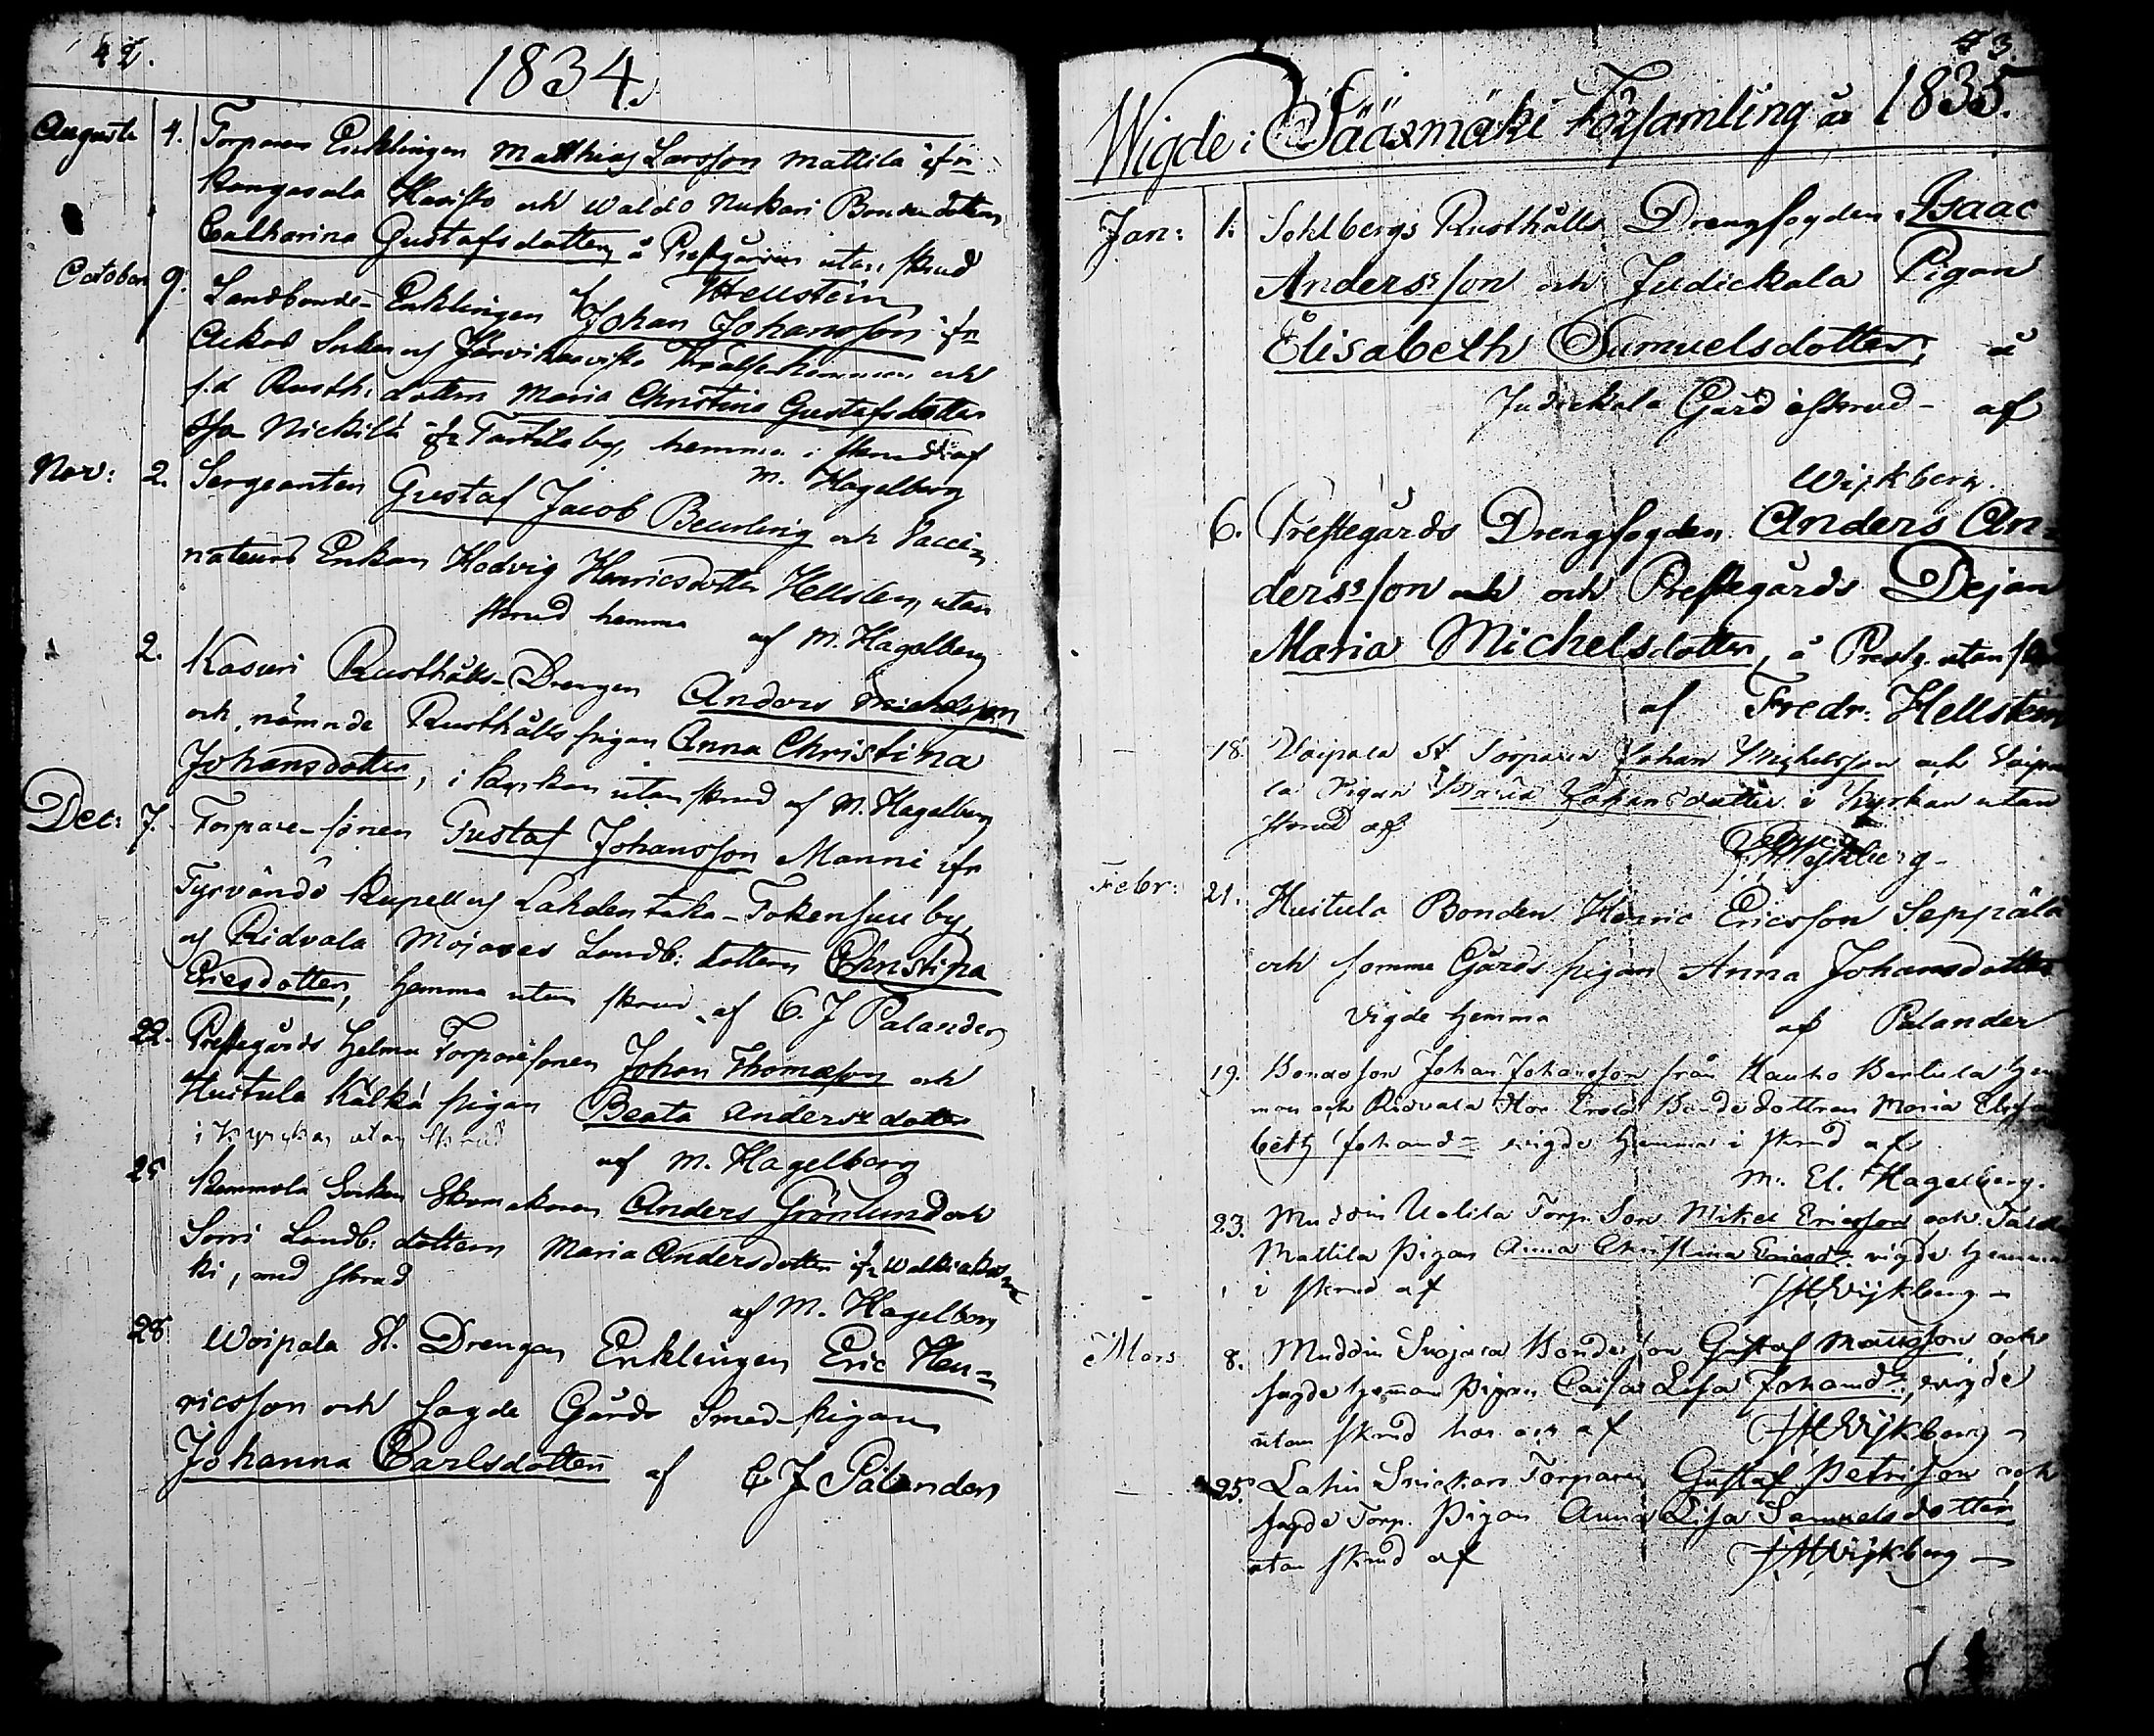 42.
1834.
Augusti 4. Torparen Enklingen Matthias Larsson Mattila ifrn
Kangasala Haviſto och Waldo Nukari Bondedottren
Catharina Gustafsdotter, å Preſtgården utan ſkrud
af Hellstein
October 9. Landbonde-Enklingen Johan Johansſon ifr
Ackas Socken och Järvikunſta hemman och
f.d. Rusth: dottren Maria Christina Gustafsdotter
Nickilä ifr Tarttila by, hemma i ſkrud af
M. Hagelberg
Nov: 2. Sergeanten Gustaf Jacob Beurling och Vacci-
nateurs Enkan Hedvig Henricsdotter Hellsten, utan
ſkrud hemma af M. Hagelberg
2. Kasuri Rusthålls-Drengen Anders Michelsſon
och nämnde Rusthålls pigan Anna Christina
Johansdotter, i kyrkan utan ſkrud af M. Hagelberg
Dec: 7. Torpare-ſonen Gustaf Johansſon Manni ifr
Tyrvändö Kapell och Lahdentaka-Tokenſuu by,
och Ridvala Mojanes Landb: dottren Christina
Ericsdotter, hemma utan ſkrud af C. J Palander
22. Preſtegårds Helmu Torpareſonen Johan Thomasſon och
Huitula Kälkä pigan Beata Andersdotter
i Kyrckan utan ſkrud
af M. Hagelberg
25 Kemmola Socken Skomakaren Anders Grönlund och
Sorri Landb: dottren Maria Andersdotter ifr Walkiakos-
ki, med ſkrud
af M. Hagelberg
28 Woipala St. Drengen Enklingen Eric Hen-
ricsſon och ſagde Gårds Smeds-Pigan
Johanna Carlsdotter af C. J Palander
43.
Wigde i Sääxmäki Församling år 1835.
Jan: 1. Sohlbergs Rusthålls Drengfogden Isaac
Andersſon och Judickala Pigan
Elisabeth Samuelsdotter, å
Judickala Gård i ſkrud- af
Wijkberg.
6. Preſtegårds Drengfogden Anders An-
dersſon och och Preſtegårds Dejan
Maria Michelsdotter, å Prestg. utan
af Fredr: Hellstein
18. Voipala St Torparen Johan Michelsſon och Voipa
la Pigan Maria Johansdotter i Kyrkan utan
ſkrud af
Wijkberg-
Febr: 21. Huitula Bonden Henric Ericsſon Seppälä
och ſamma Gårds pigan Anna Johansdotter
Vigde hemma af Palander
19. Bondeſon Johan Johansſon från Hauho Bertula hem
man och Ridvala Bondedottren Maria Eliſa
beth Johansd- vigde hemma i ſkrud af
M. El. Hagelberg.
23. Muddin Uotila Torp. Son Mikel Ericsſon och
Mattila Pigan Anna Christina Ericsd: vigde hemma
i ſkrud af JHWijkberg-
Mars 8. Muddin Suojala Bondeſon Gustaf Matsſon och
ſagde hemman Pigan Caiſa Liſa Johansd:, vigde
utan ſkrud af JHWijkberg-
25. Lahis Snickars Torparen Gustaf Petersſon och
ſagde Torp. Pigan Anna Liſa Samuelsdotter
utan ſkrud af JHWijkberg-